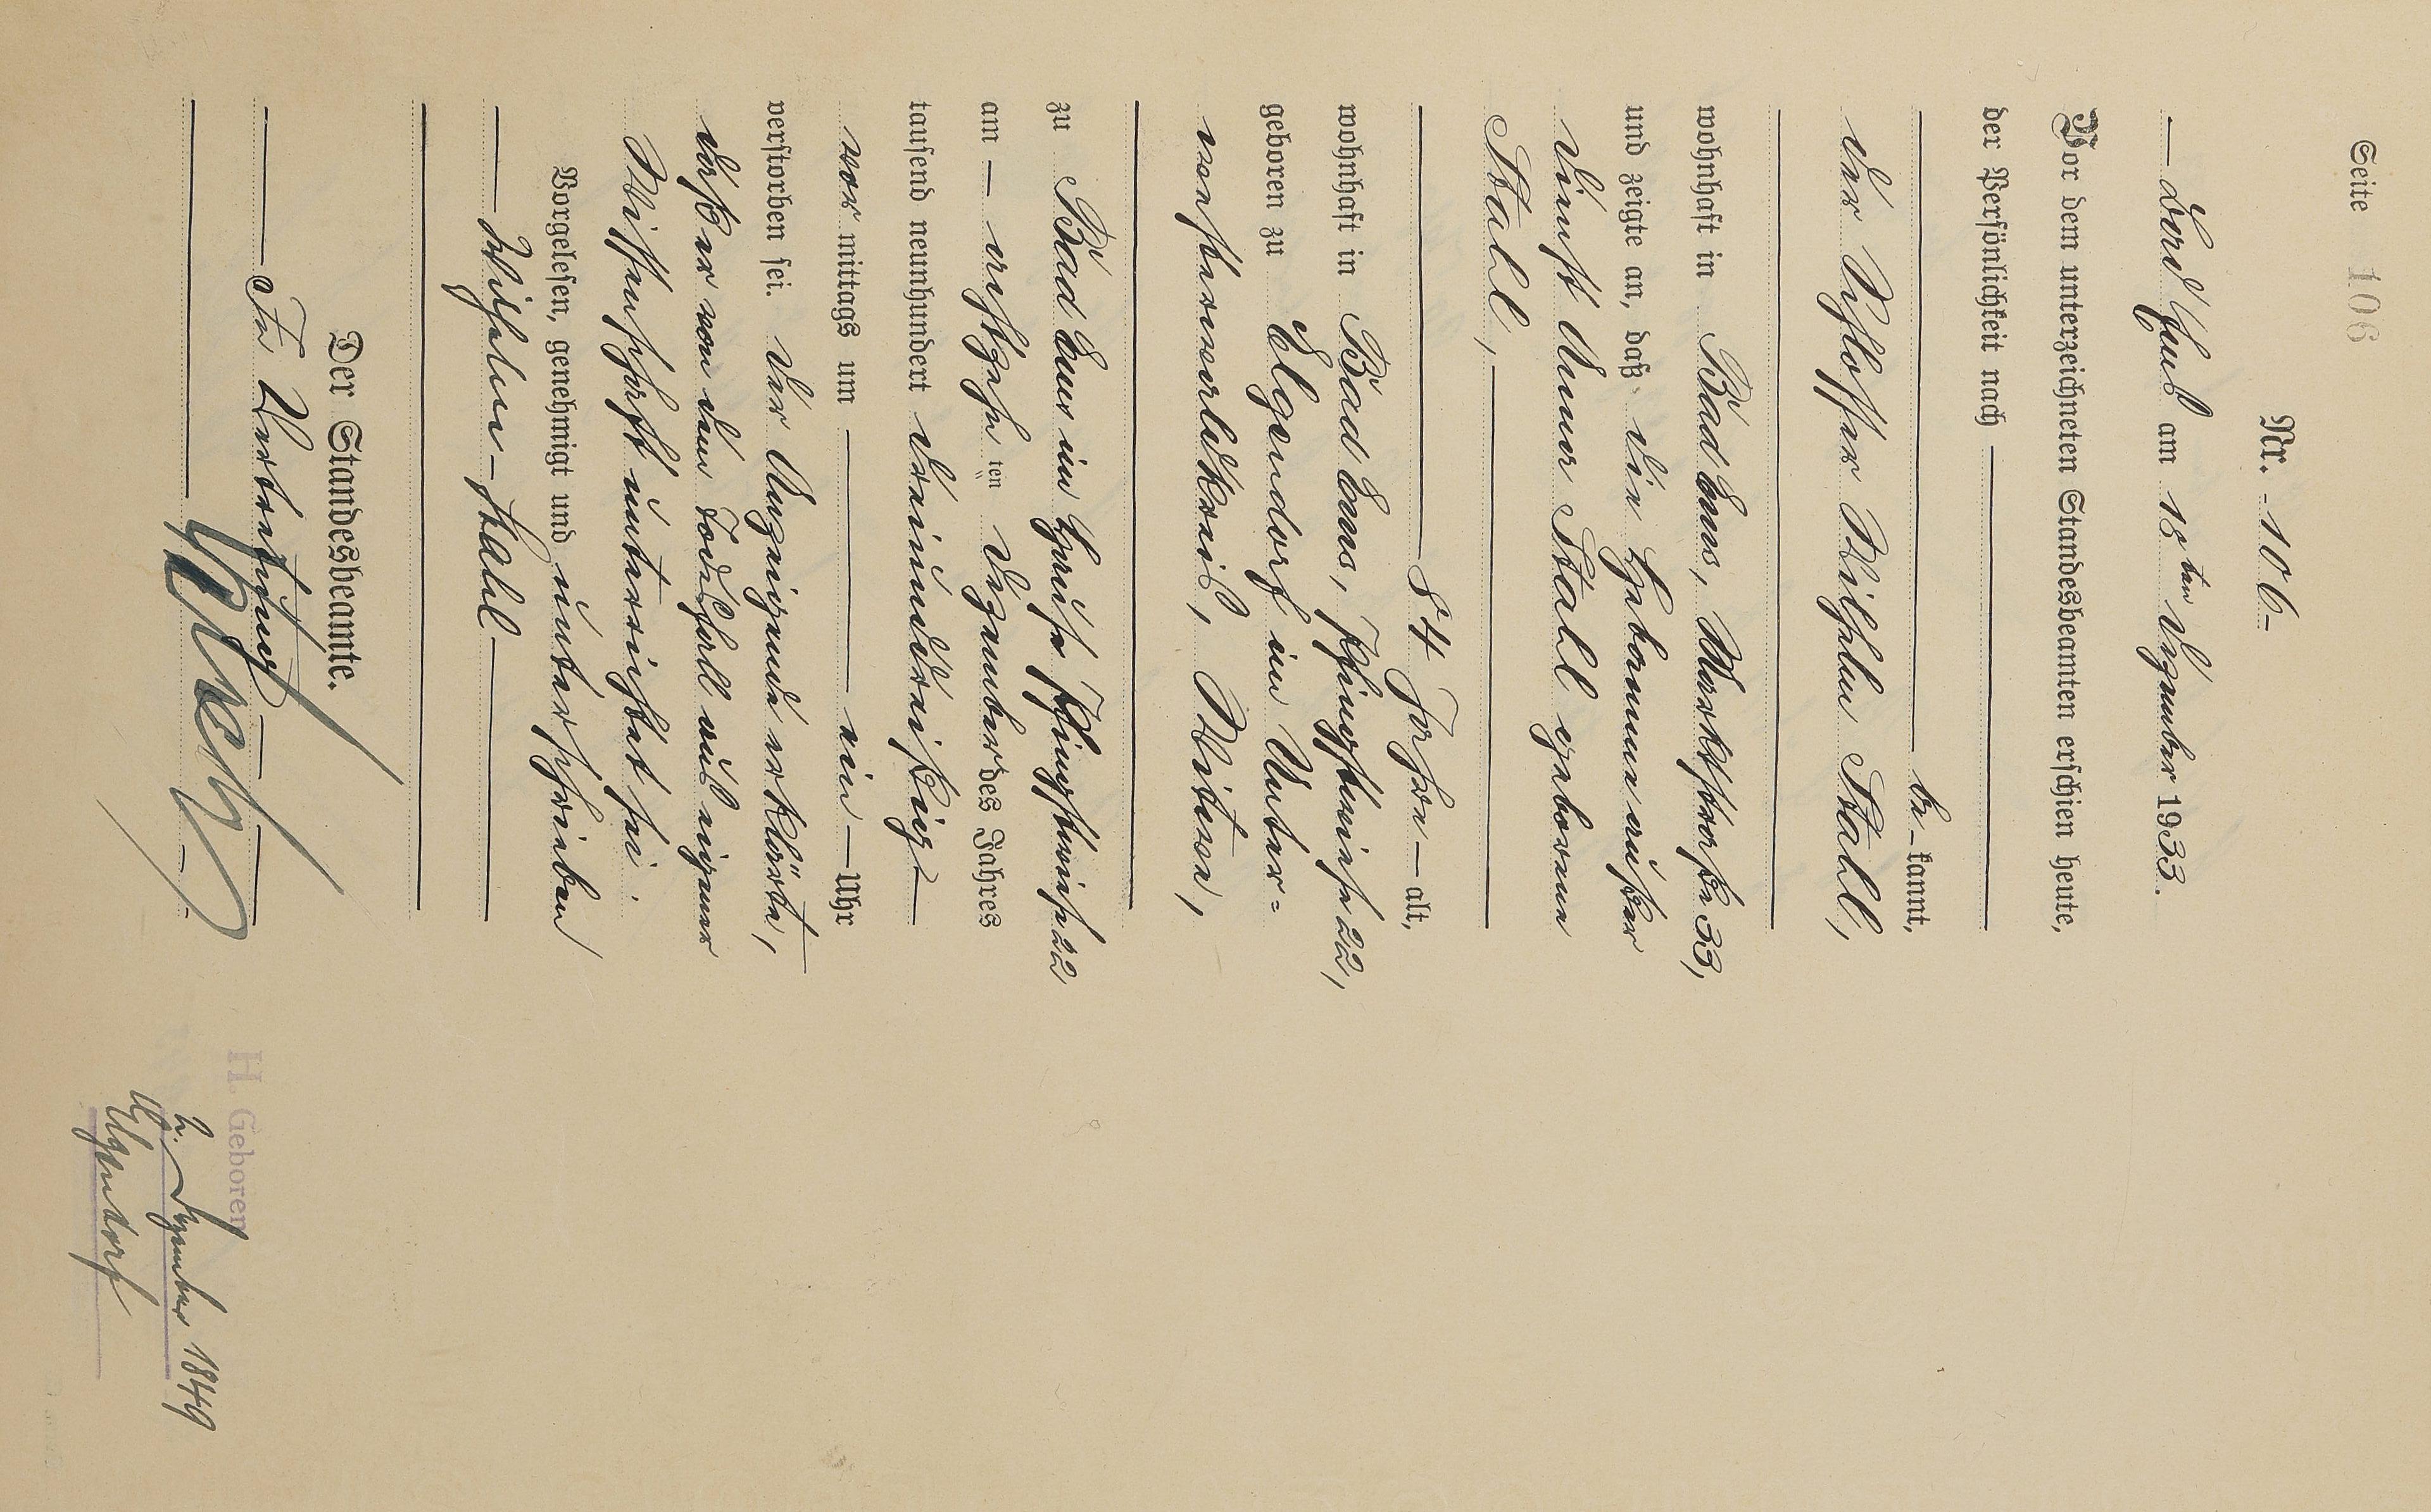 Seite 106
Nr. - 106 -
Bad Ems am 18ten Dezember 1933.
Vor dem unterzeichneten Standesbeamten erschien heute,
der Persönlichkeit nach
be- kannt,
der Schlosser Wilhelm Stahl,
wohnhaft in Bad Ems, Marktstraße 33,
und zeigte an, daß die Geborene außer
Dienst Anna Stahl geborene
Stahl,
84 Jahre alt,
wohnhaft in Bad Ems, Pfingstwiese 22,
geboren zu Elgendorf im Unter=
westerwaldkreis, Witwe,
zu Bad Ems im Hause Pfingstwiese 22
am achtzehn ten Dezember des Jahres
tausend neunhundert dreiunddreißig
vor mittags um ein Uhr
verstorben sei. Der Anzeigende erklärte,
daß er von dem Todesfall aus eigener
Wissenschaft unterrichtet sei.
Vorgelesen, genehmigt und unterschrieben
Wilhelm Stahl
Der Standesbeamte.
In Vertretung
H. Geboren
2. Dezember 1849
Elgendorf